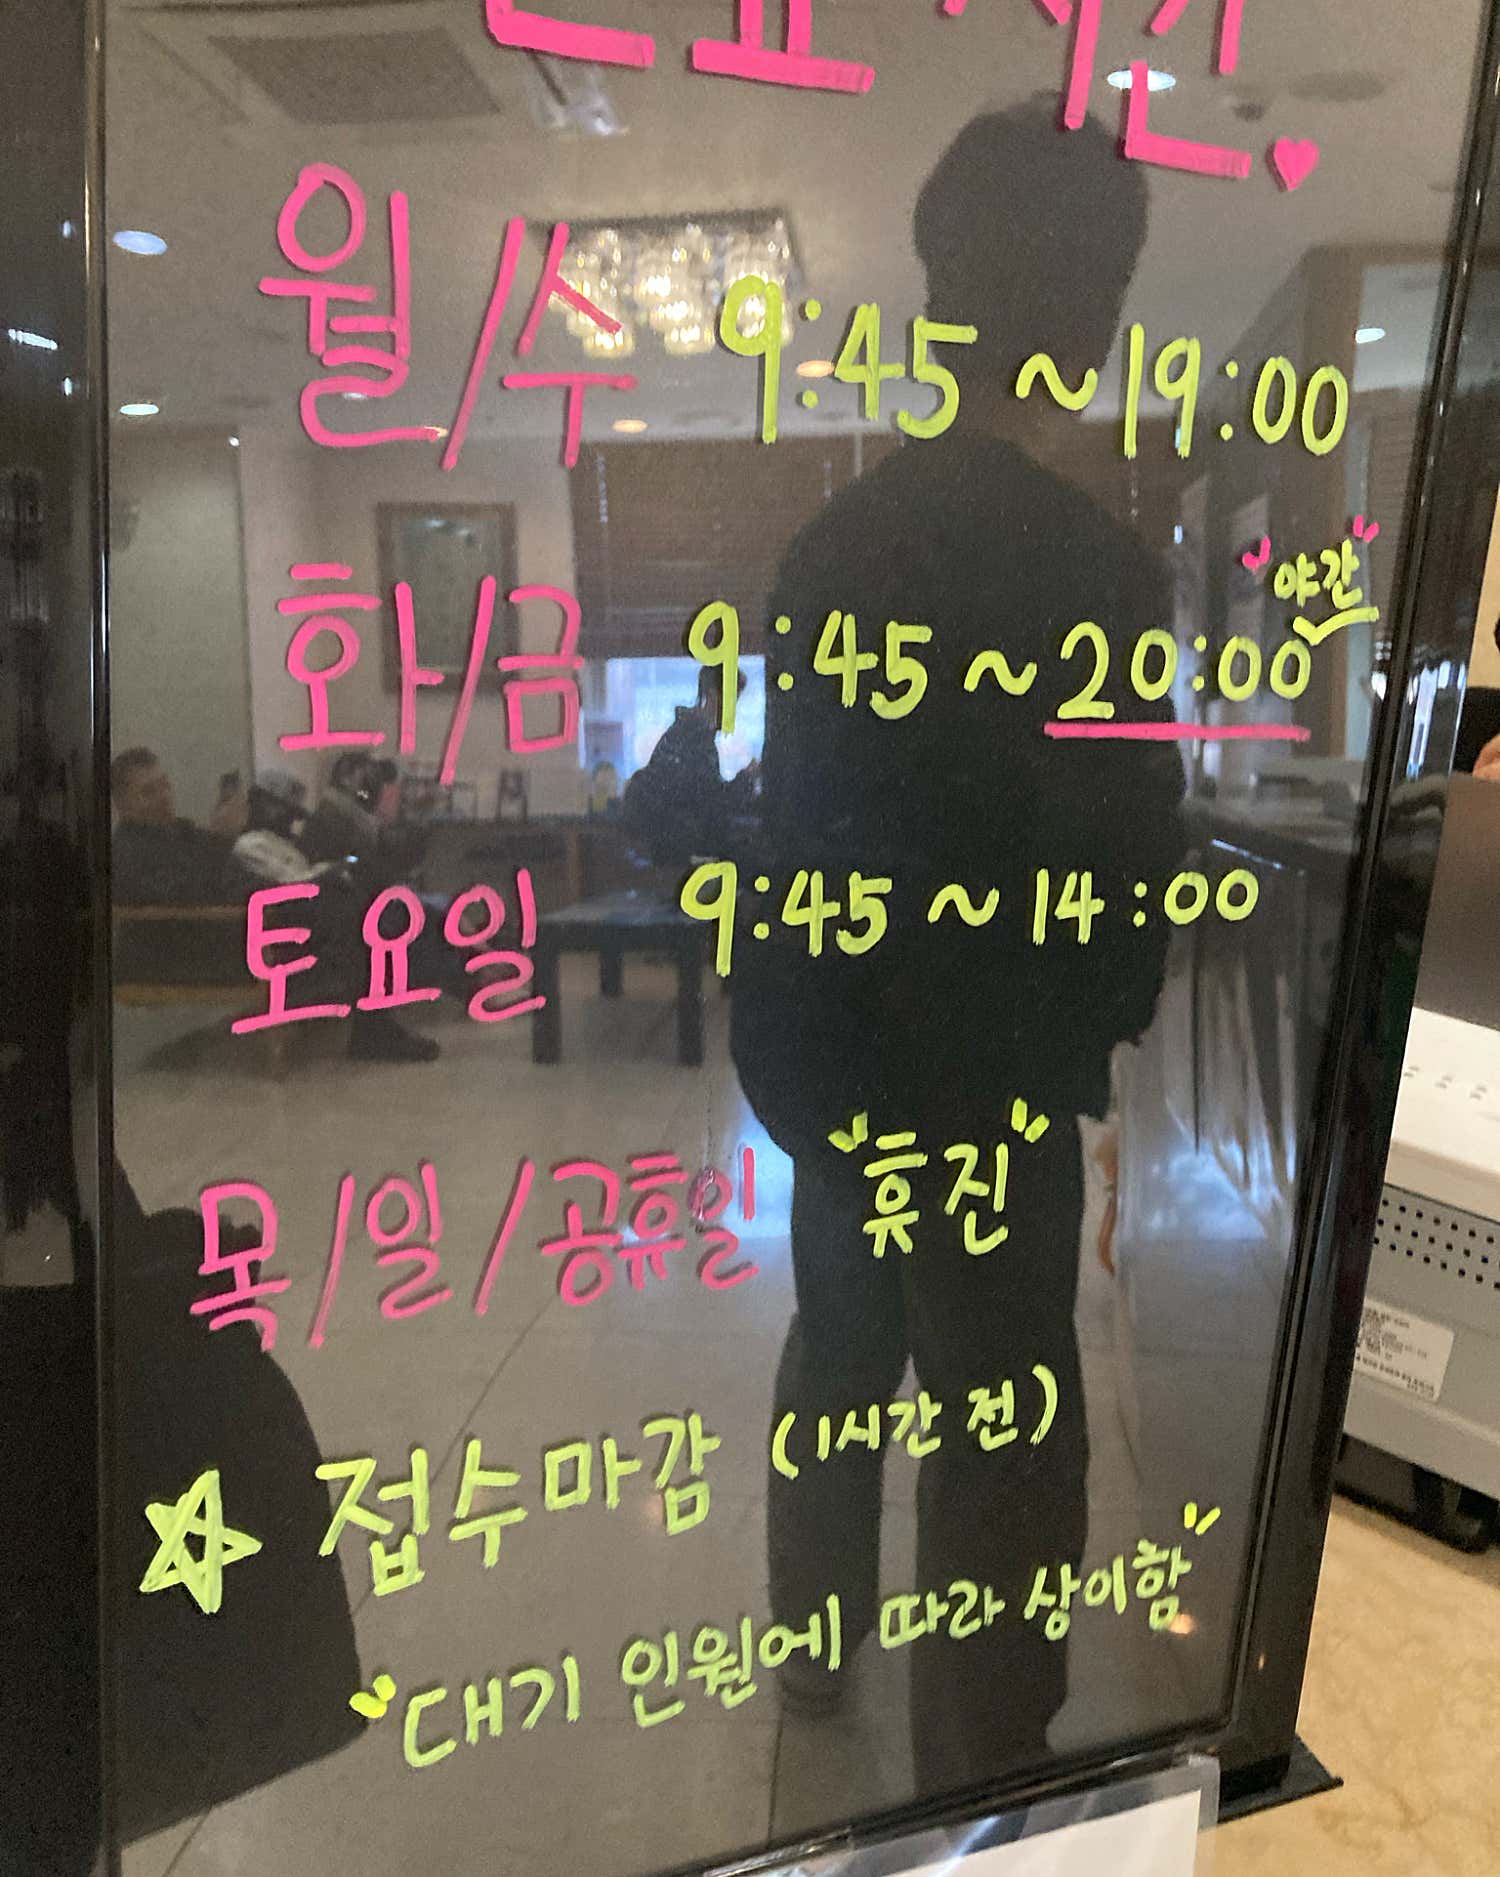 진료시간
월/수 9:45 ~ 19:00
"야간"
화/금 9:45 ~ 20:00
토요일 9:45 ~ 14:00
목/일/공휴일 "휴진"
☆ 접수마감 (1시간 전)
"대기 인원에 따라 상이함"